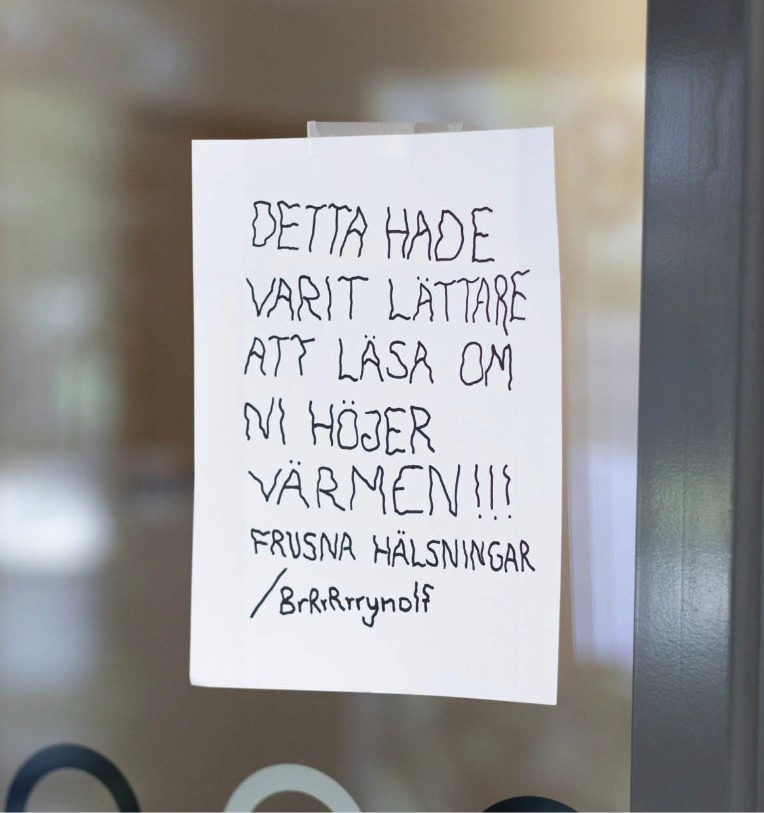 DETTA HADE
VARIT LÄTTARE
ATT LÄSA OM
NI HÖJER
VÄRMEN!!!
FRUSNA HÄLSNINGAR
/BrRrRrrynolf